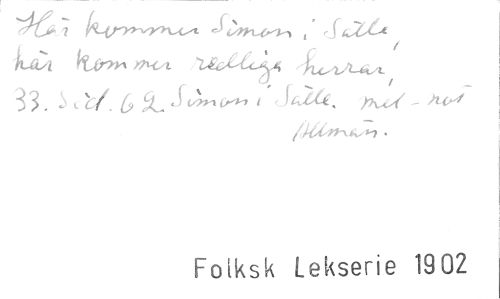 Här kommer Simon i Sälle,
här kommer redliga herrar,
33. Sid. 62. Simon i Sälle. mel-not
Allmän.
Folksk Lekserie 1902